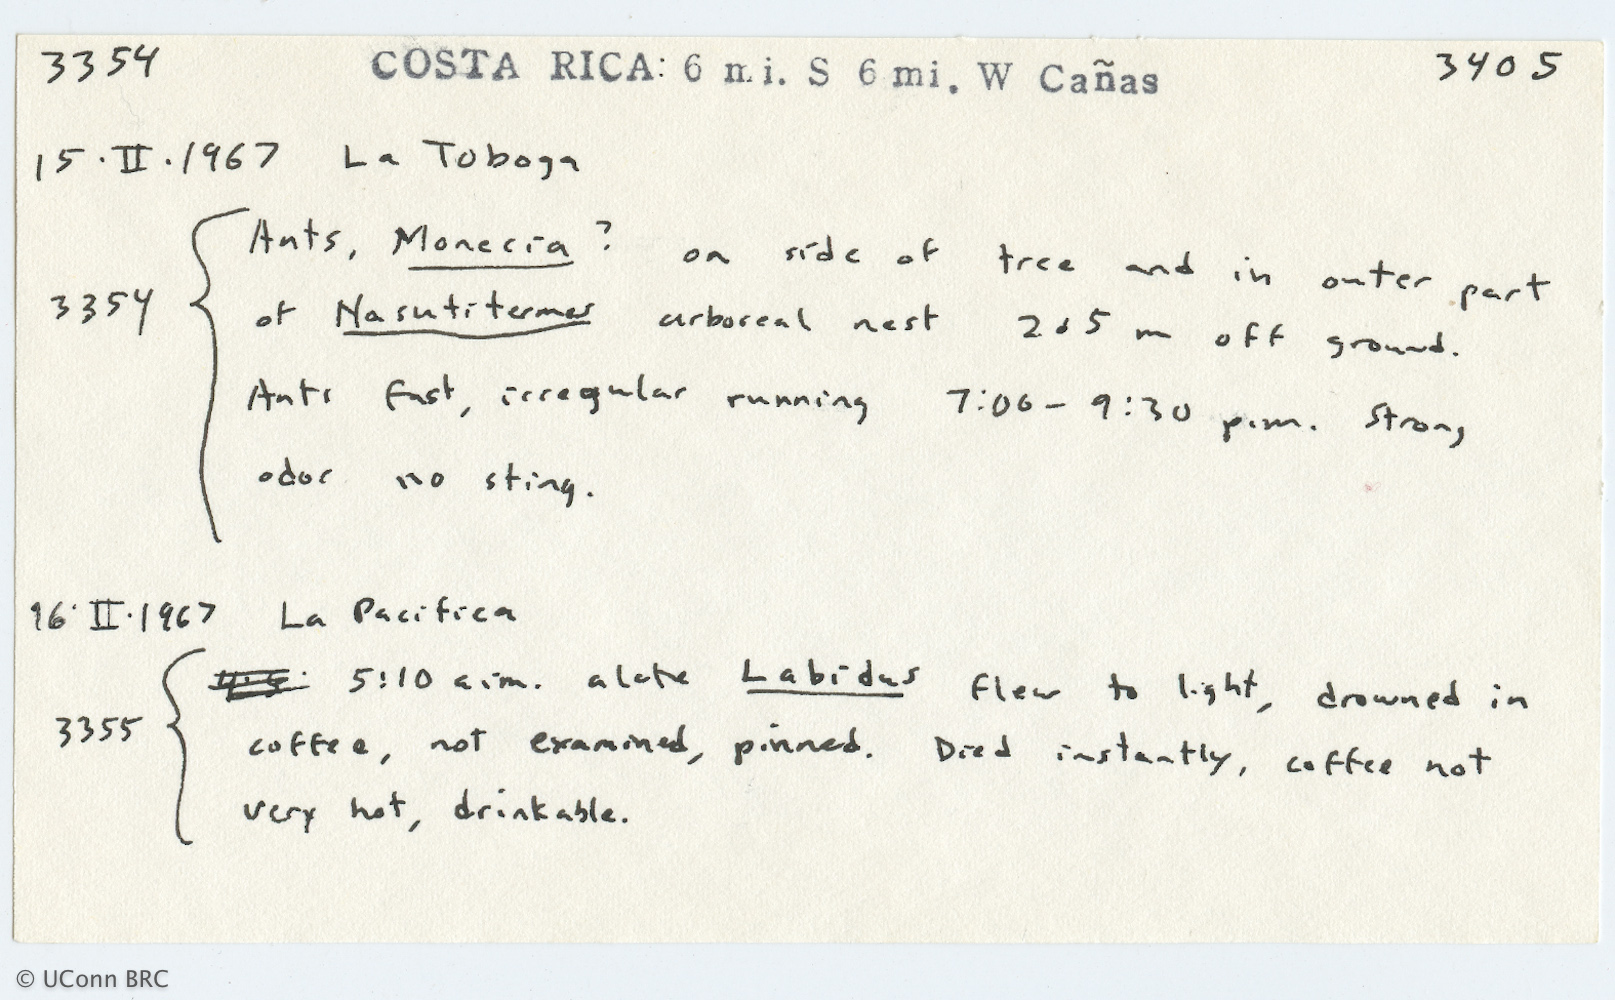 3354 COSTA RICA: 6 mi. S 6 mi. W Cañas 3405
15.II.1967 La Toboga
Ants, Monecia? on side of tree and in outer part
3354 of Nasutitermes arboreal nest 2.5 m off ground.
Ants fast, irregular running 7:00-9:30 p.m. Strong
odor no sting.
16.II.1967 La Pacifica
5:10 a.m. alate Labidus flew to light, drowned in
3355 coffee, not examined, pinned. Died instantly, coffee not
very hot, drinkable.
© UConn BRC